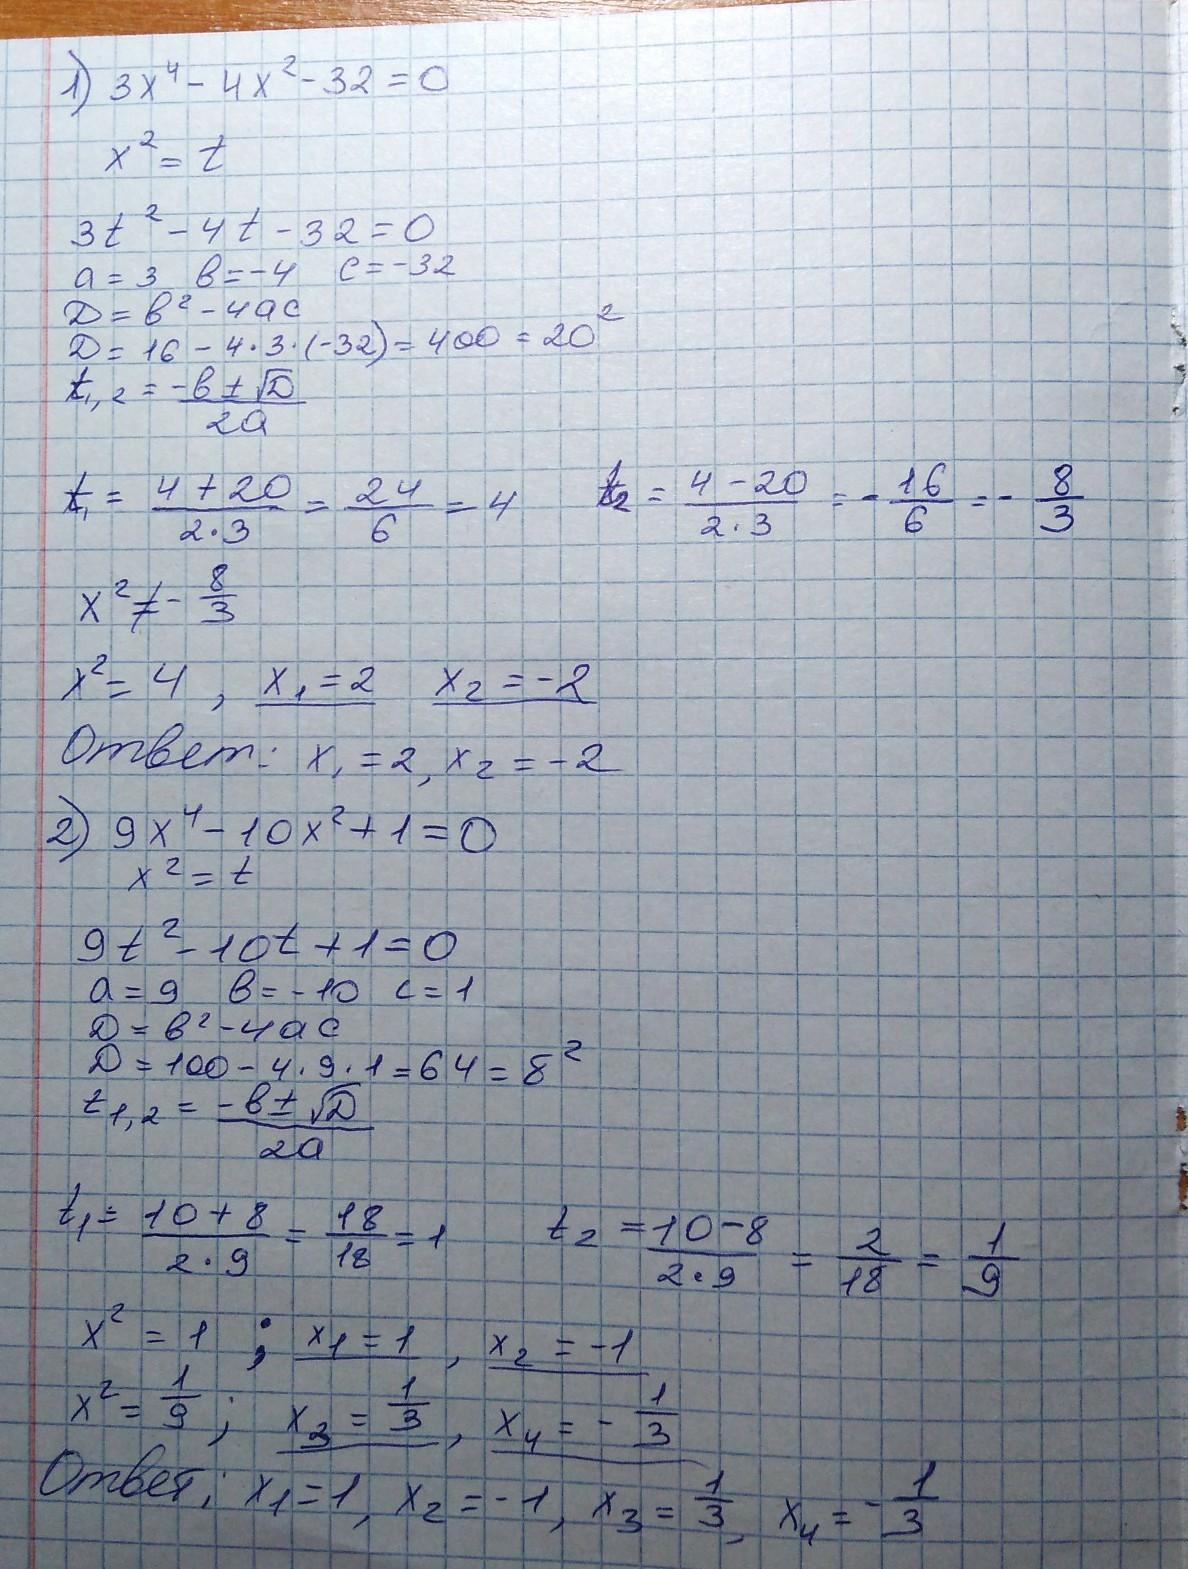 1) 3x⁴ - 4x² - 32 = 0
x² = t
3t² - 4t - 32 = 0
a = 3 в = -4 c = -32
D = в² - 4ac
D = 16 - 4·3·(-32) = 400 = 20²
t₁,₂ = (-в ± √D)/2a
t₁ = (4 + 20)/(2·3) = 24/6 = 4 t₂ = (4 - 20)/(2·3) = -16/6 = -8/3
x² ≠ -8/3
x² = 4 , x₁ = 2 x₂ = -2
Ответ: x₁ = 2, x₂ = -2
2) 9x⁴ - 10x² + 1 = 0
x² = t
9t² - 10t + 1 = 0
a = 9 в = -10 c = 1
D = в² - 4ac
D = 100 - 4·9·1 = 64 = 8²
t₁,₂ = (-в ± √D)/2a
t₁ = (10 + 8)/(2·9) = 18/18 = 1 t₂ = (10 - 8)/(2·9) = 2/18 = 1/9
x² = 1 ; x₁ = 1 , x₂ = -1
x² = 1/9 ; x₃ = 1/3 , x₄ = -1/3
Ответ: x₁ = 1, x₂ = -1, x₃ = 1/3, x₄ = -1/3